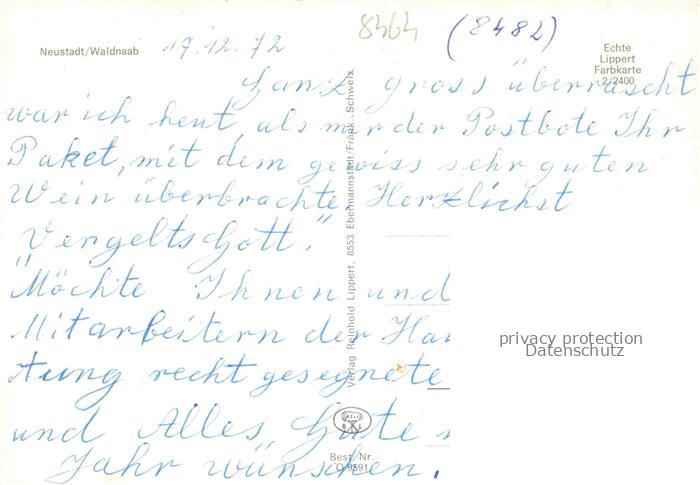 8464 (8482)
Neustadt/Waldnaab 17.12.72
Echte
Lippert
Farbkarte
2/2400
Ganz gross überrascht
war ich heut, als mir der Postbote Ihr
Paket, mit dem gewiss sehr guten
Wein überbrachte. Herzlichst
Vergelts Gott."
"Möchte Ihnen und
Mitarbeitern der
tung recht gesegnete
und Alles Gute
Jahr wünschen.
Verlag Reinhold Lippert, 8553 Ebermannstadt/Fränk. Schweiz
privacy protection
Datenschutz
Best.-Nr.